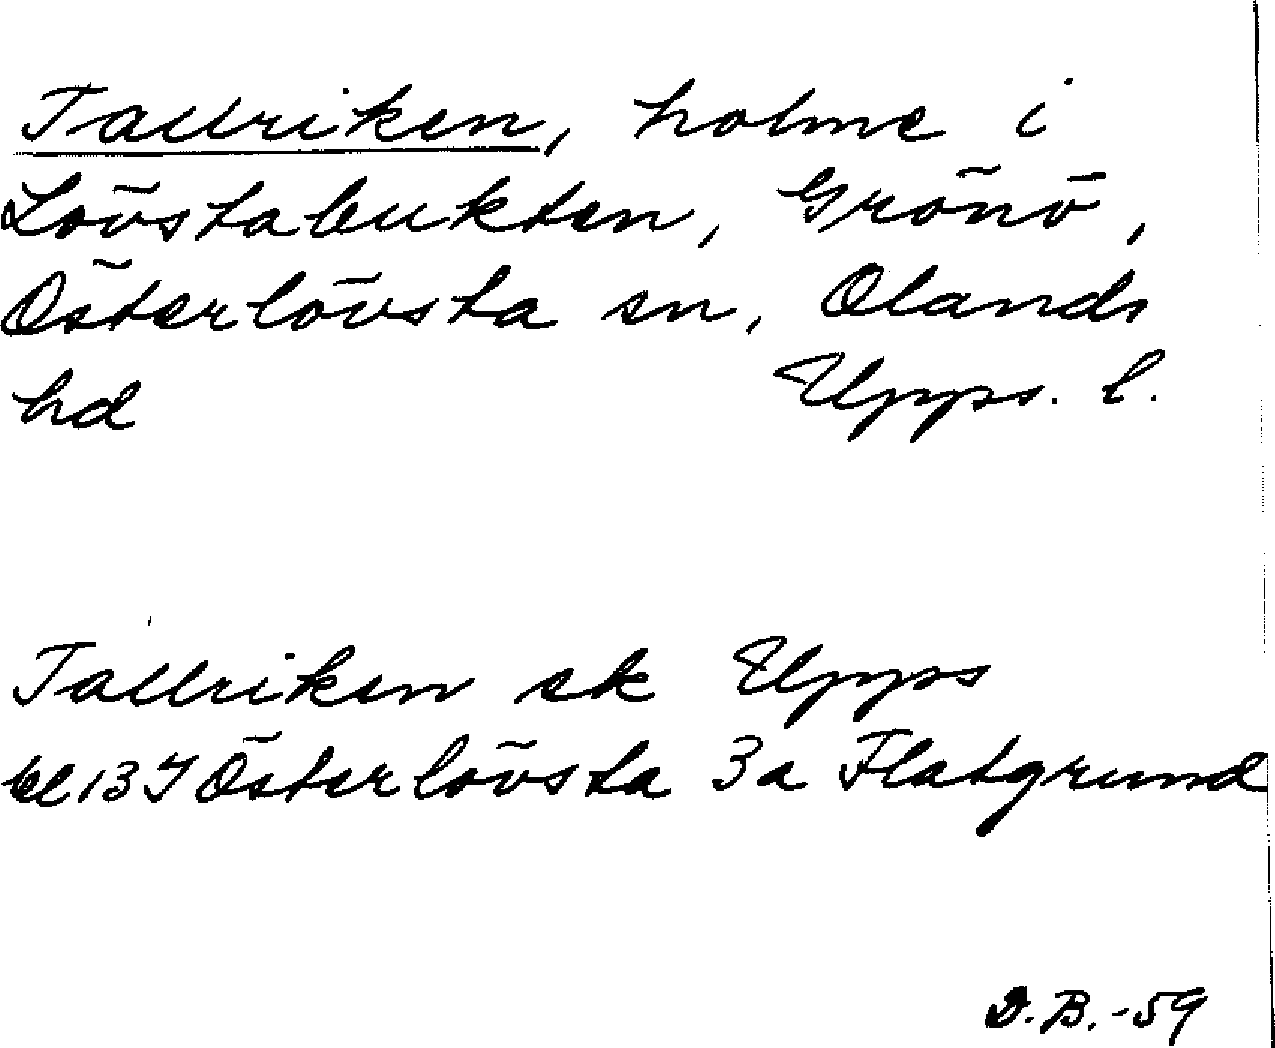 Tallriken, holme i
Lövstabukten, Grönö,
Österlövsta sn, Olands
hd Upps. l.
Tallriken ek Upps
bl 137 Österlövsta 3a Flatgrund
D.B.-59